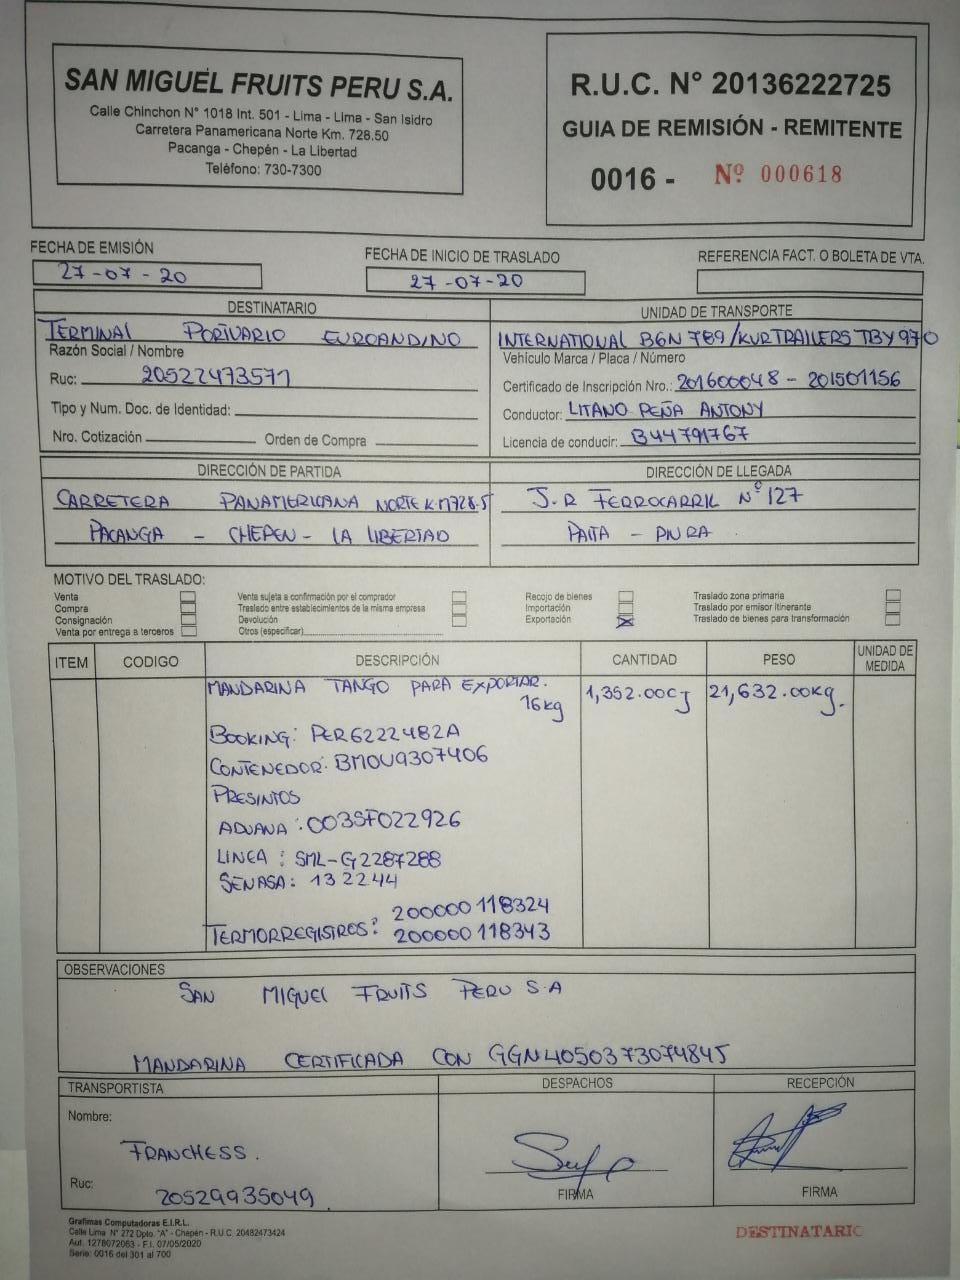 SAN MIGUEL FRUITS PERU S.A.
Calle Chinchon N° 1018 Int. 501 - Lima - Lima - San Isidro
Carretera Panamericana Norte Km. 728.50
Pacanga - Chepén - La Libertad
Teléfono: 730-7300
R.U.C. N° 20136222725
GUIA DE REMISIÓN - REMITENTE
0016 - Nº 000618
FECHA DE EMISIÓN
27-07-20
FECHA DE INICIO DE TRASLADO
27-07-20
REFERENCIA FACT. O BOLETA DE VTA.
DESTINATARIO
TERMINAL PORTUARIO EUROANDINO
Razón Social / Nombre
Ruc: 20522473571
Tipo y Num. Doc. de Identidad:
Nro. Cotización Orden de Compra
UNIDAD DE TRANSPORTE
INTERNATIONAL BGN 789/KURTRAILERS TBY 970
Vehículo Marca / Placa / Número
Certificado de Inscripción Nro.: 201600048 - 201501156
Conductor: LITANO PEÑA ANTONY
Licencia de conducir: B44791767
DIRECCIÓN DE PARTIDA
CARRETERA PANAMERICANA NORTE K.M728.5
PACANGA - CHEPEN - LA LIBERTAD
DIRECCIÓN DE LLEGADA
J.R FERROCARRIL Nº 127
PAITA - PIURA
MOTIVO DEL TRASLADO:
Venta
Compra
Consignación
Venta por entrega a terceros
Venta sujeta a confirmación por el comprador
Traslado entre establecimientos de la misma empresa
Devolución
Otros (especificar)
Recojo de bienes
Importación
Exportación
Traslado zona primaria
Traslado por emisor itinerante
Traslado de bienes para transformación
ITEM CODIGO DESCRIPCIÓN CANTIDAD PESO UNIDAD DE MEDIDA
MANDARINA TANGO PARA EXPORTAR. 1,352.00CJ 21,632.00Kg.
16kg
BOOKING: PER6222482A
CONTENEDOR: BMOU9307406
PRESINTOS
ADUANA: 003SF022926
LINEA : SML-G2287288
SENASA: 132244
TERMORREGISTROS: 200000118324
200000118343
OBSERVACIONES
SAN MIGUEL FRUITS PERU S.A
MANDARINA CERTIFICADA CON GGN4050373074845
TRANSPORTISTA
Nombre:
FRANCHESS.
Ruc:
20529935049
DESPACHOS
FIRMA
RECEPCIÓN
FIRMA
Grafimas Computadoras E.I.R.L.
Calle Lima N° 272 Dpto. "A" - Chepén - R.U.C. 20482473424
Aut. 1278072063 - F.I. 07/05/2020
Serie: 0016 del 301 al 700
DESTINATARIO